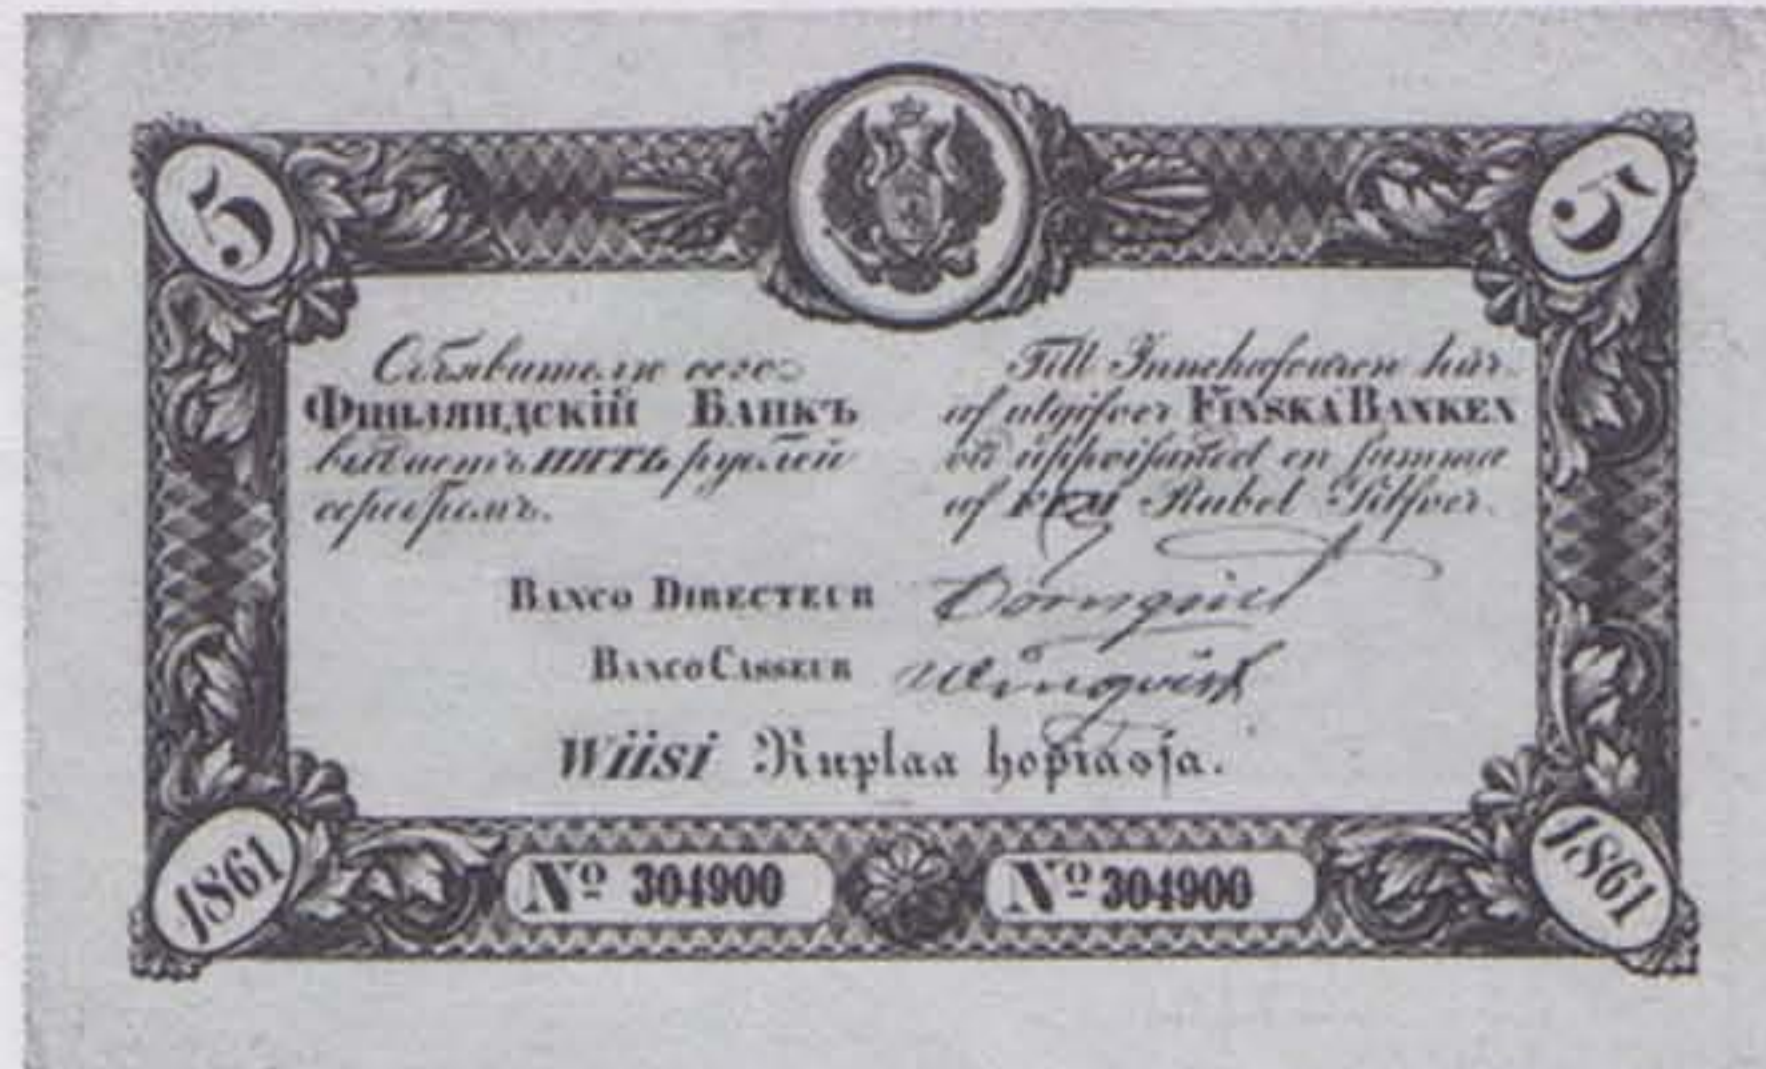 5 5
Объявителю сего
Финляндскій Банкъ
выдаетъ ПЯТЬ рублей
серебромъ.
Till Innehafvaren här-
af utgifver FINSKA BANKEN
vid uppvisandet en summa
af FEM Rubel Silfver.
BANCO DIRECTEUR
BANCO CASSEUR
Wiisi Ruplaa hopiaosa.
1861 No 304900 No 304900 1861